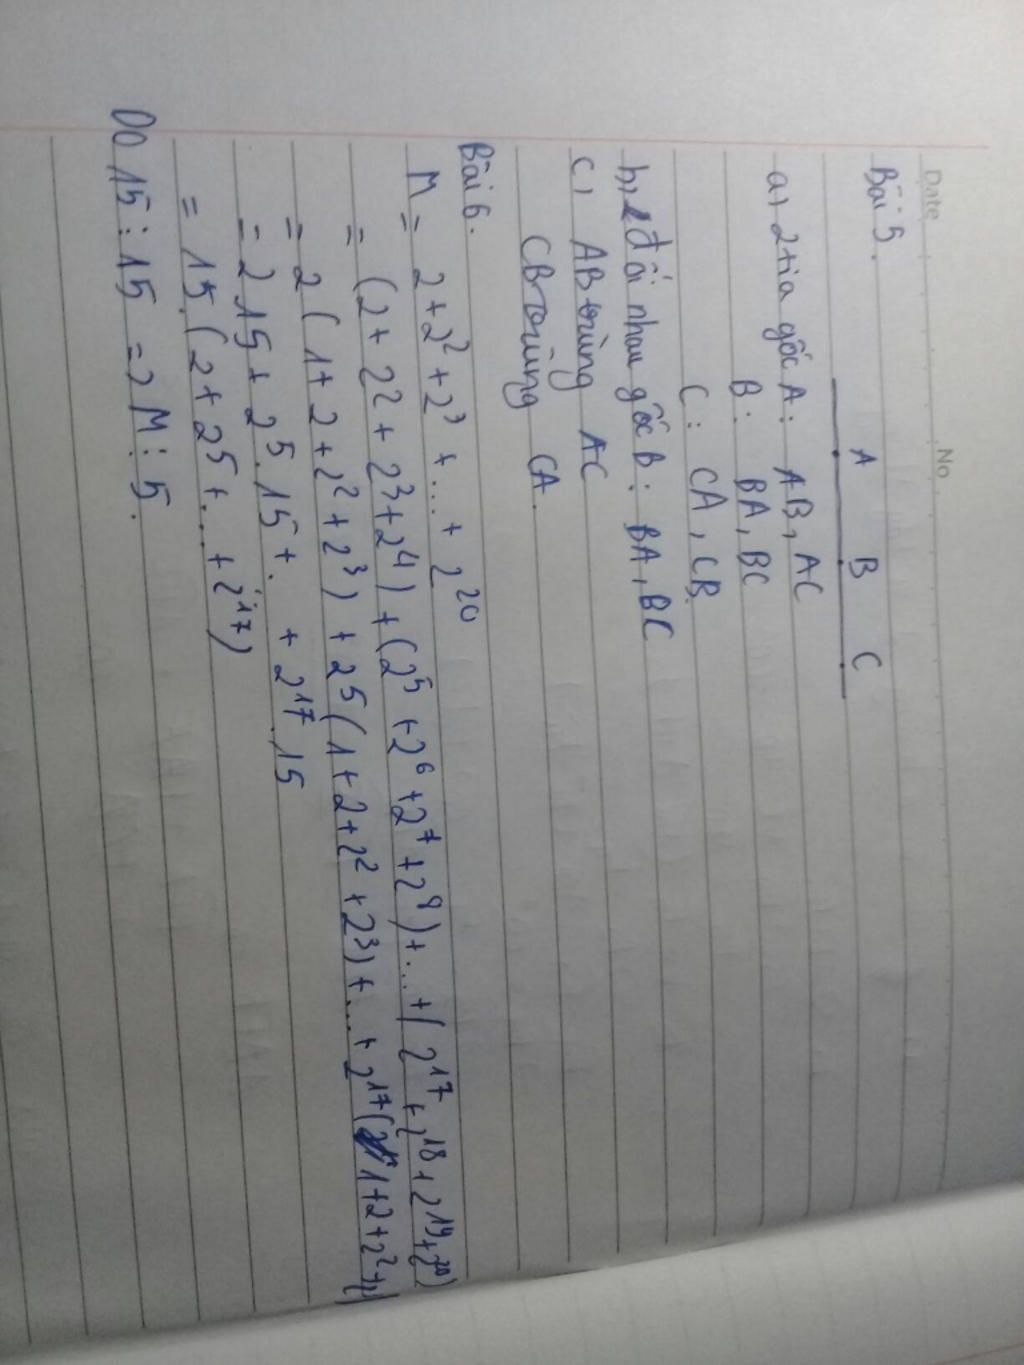 Date No
Bài 5.
A B C
a, 2 tia gốc A: AB, AC
B: BA, BC
C: CA, CB
b, 2 đối nhau gốc B: BA, BC
c, AB trùng AC
CB trùng CA.
Bài 6.
M = 2 + 2² + 2³ + ... + 2²⁰
= (2 + 2² + 2³ + 2⁴) + (2⁵ + 2⁶ + 2⁷ + 2⁸) + ... + (2¹⁷ + 2¹⁸ + 2¹⁹ + 2²⁰)
= 2 (1 + 2 + 2² + 2³) + 2⁵ (1 + 2 + 2² + 2³) + ... + 2¹⁷ (1 + 2 + 2² +
= 2 15 + 2⁵. 15 + . + 2¹⁷. 15
= 15. (2 + 2⁵ + ... + 2¹⁷)
Do 15 ⋮ 15 => M ⋮ 5.